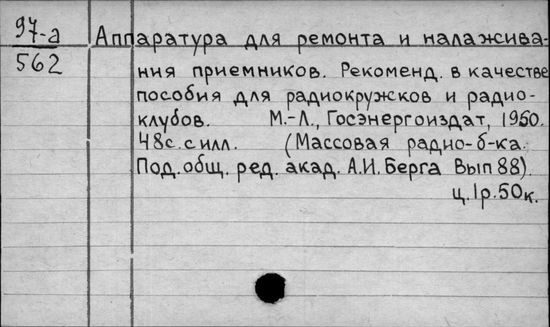 97-а
562
Аппаратура для ремонта и налажива-
ния приемников. Рекоменд. в качестве
пособия для радиокружков и радио-
клубов. М.-Л., Госэнергоиздат, 1950.
48с. с илл. (Массовая радио-б-ка.
Под. общ. ред. акад. А.И. Берга Вып 88).
ц. 1р. 50к.